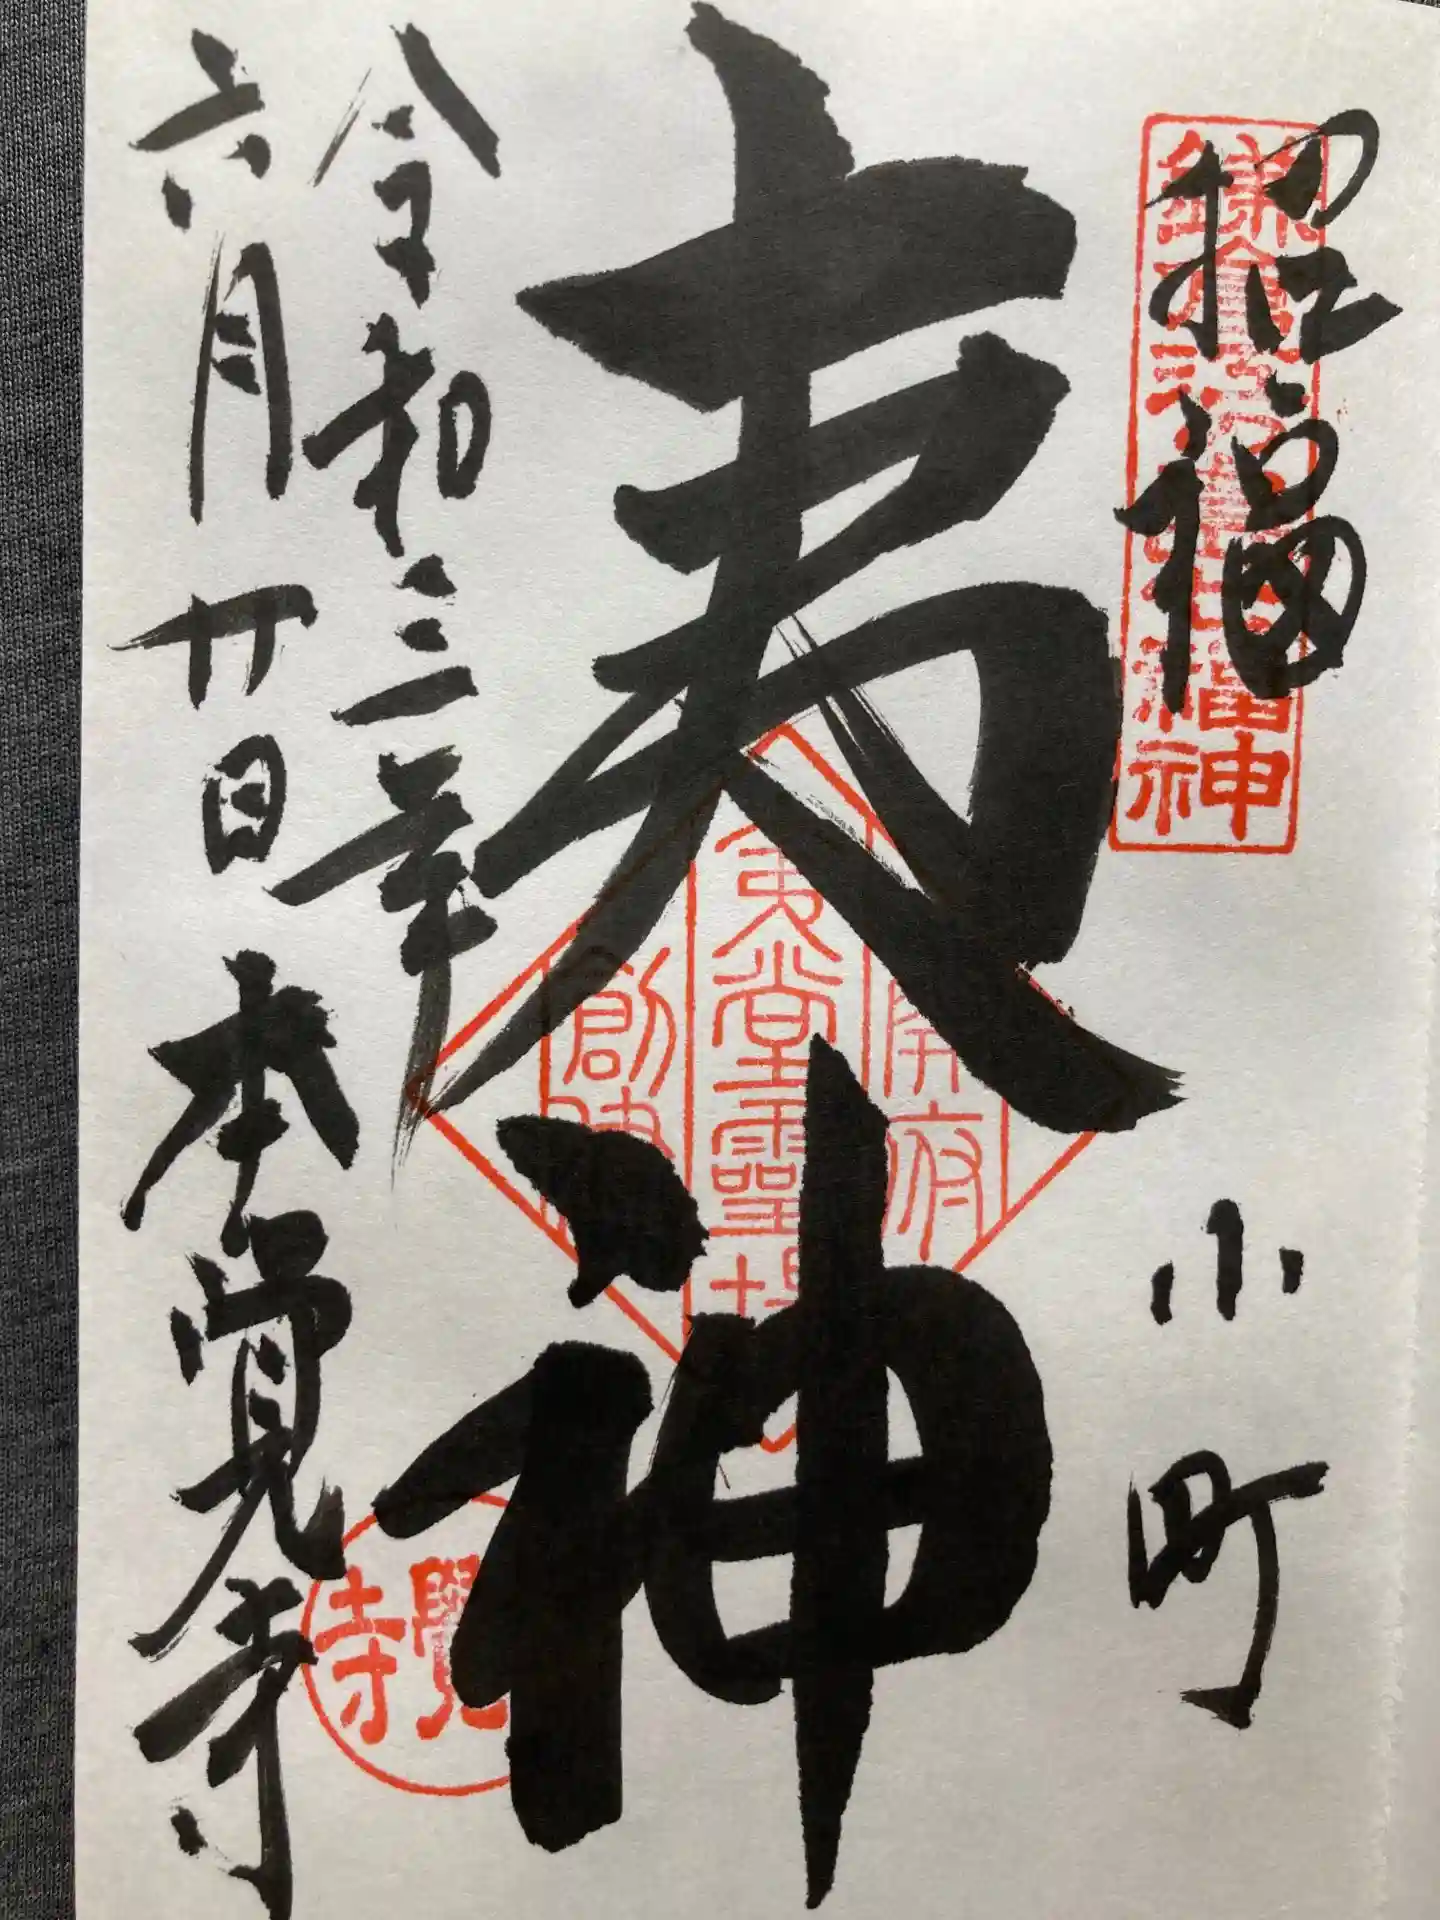 招福
小町
鎌倉江の島七福神
夷神
開府
夷堂霊場
創建
令和三年
六月廿日
本覚寺
覺寺